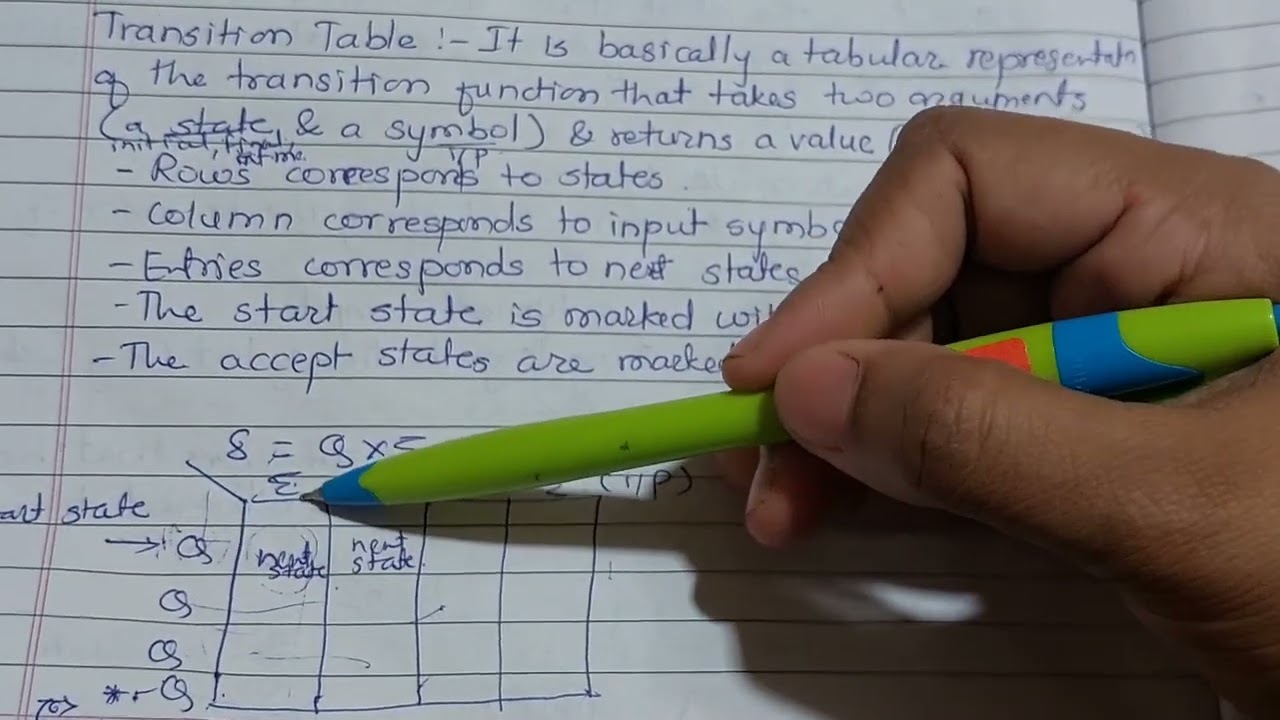 Transition Table :- It is basically a tabular representatn
of the transition function that takes two arguments
(a state, & a symbol) & returns a value
initial, final, I/P
- Rows corresponds to states.
- Column corresponds to input
- Entries corresponds to next states
- The start state is marked
- The accept states are
δ = Q x Σ
Σ Σ (I/P)
state
→ Q next state next state
Q
Q
* Q